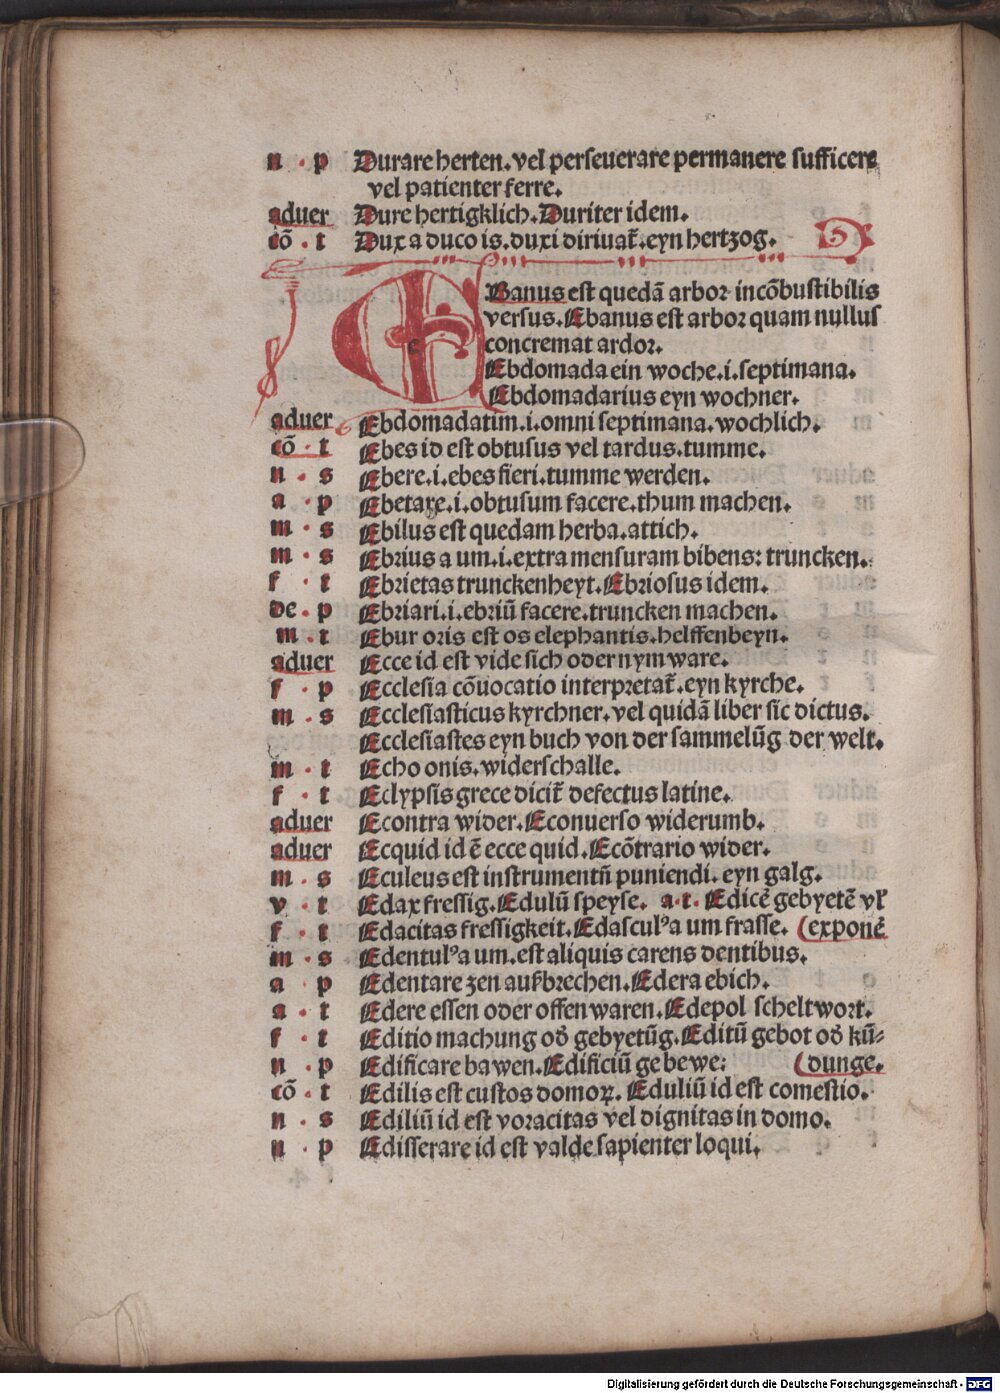 n · p Durare herten. vel perseuerare permanere sufficere
vel patienter ferre.
aduer Dure hertigklich. Duriter idem.
cō · t Dux a duco is. duxi diriuat̄. eyn hertzog.
EBanus est quedā arbor incōbustibilis
versus. Ebanus est arbor quam nullus
concremat ardor.
Ebdomada ein woche. i. septimana.
Ebdomadarius eyn wochner.
aduer Ebdomadatim. i. omni septimana. wochlich.
cō · t Ebes id est obtusus vel tardus. tumme.
n · s Ebere. i. ebes fieri. tumme werden.
a · p Ebetare. i. obtusum facere. thum machen.
m · s Ebilus est quedam herba. attich.
m · s Ebrius a um. i. extra mensuram bibens: truncken.
f · t Ebrietas trunckenheyt. Ebriosus idem.
de · p Ebriari. i. ebriū facere. truncken machen.
m · t Ebur oris est os elephantis. helffenbeyn.
aduer Ecce id est vide sich oder nym ware.
f · p Ecclesia cōuocatio interpretat̄. eyn kyrche.
m · s Ecclesiasticus kyrchner. vel quidā liber sic dictus.
Ecclesiastes eyn buch von der sammelūg der welt.
m · t Echo onis. widerschalle.
f · t Eclypsis grece dicit̄ defectus latine.
aduer Econtra wider. Econuerso widerumb.
aduer Ecquid id ē ecce quid. Ecōtrario wider.
m · s Eculeus est instrumentū puniendi. eyn galg.
v · t Edax fressig. Edulū speyse. a · t · Edicē gebyetē vl̄
f · t Edacitas fressigkeit. Edasculꝰ a um frasse. (exponē
m · s Edentulꝰ a um. est aliquis carens dentibus.
a · p Edentare zen auszbrechen. Edera ebich.
a · t Edere essen oder offen waren. Edepol scheltwort.
f · t Editio machung od̄ gebyetūg. Editū gebot od̄ kū⸗
n · p Edificare bawen. Edificiū gebewe: (dunge.
cō · t Edilis est custos domoꝝ. Eduliū id est comestio.
n · s Ediliū id est voracitas vel dignitas in domo.
n · p Edisserare id est valde sapienter loqui.
Digitalisierung gefördert durch die Deutsche Forschungsgemeinschaft - DFG